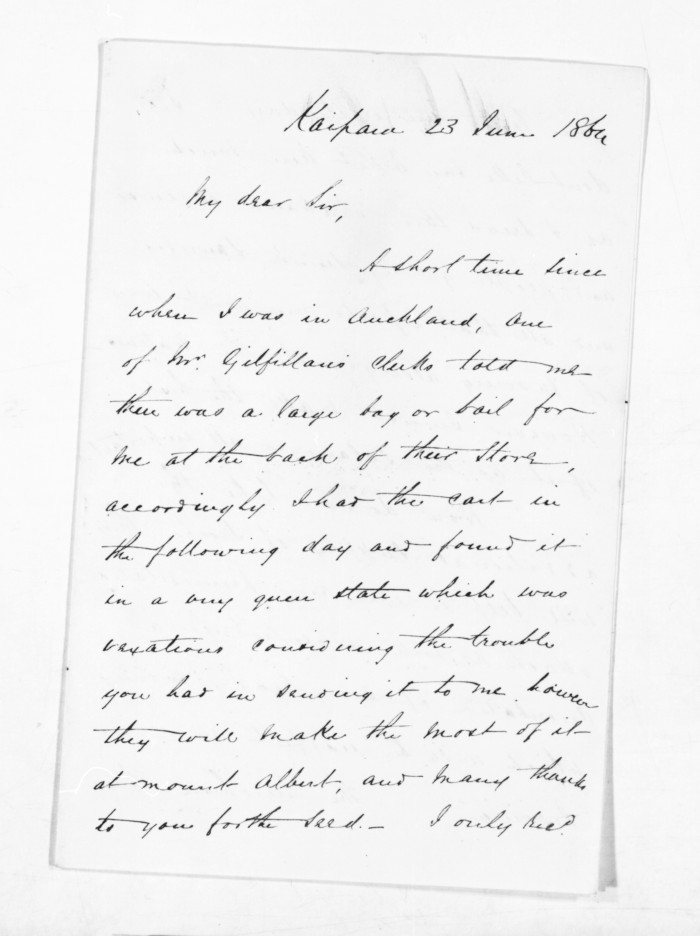 Kaipara 23 June 1864
My dear Sir,
A short time since
when I was in Auckland, one
of Mr. Gilfillan's clerks told me
there was a large bag or bail for
me at the back of their Store,
accordingly I had the cart in
the following day and found it
in a very queer state which was
vexatious considering the trouble
you had in sending it to me, however
they will make the most of it
at mount Albert, and many thanks
to you for the seed. — I only recd.